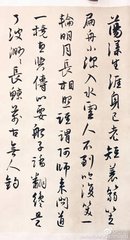 蕩漾生涯身已老短蓑箬笠
扁舟小深入水雲人不到吟復笑一
輪明月長相照誰謂阿師來問道
一橈直與傳心要船子踏翻才是
了波渺渺長鯨萬古無人釣